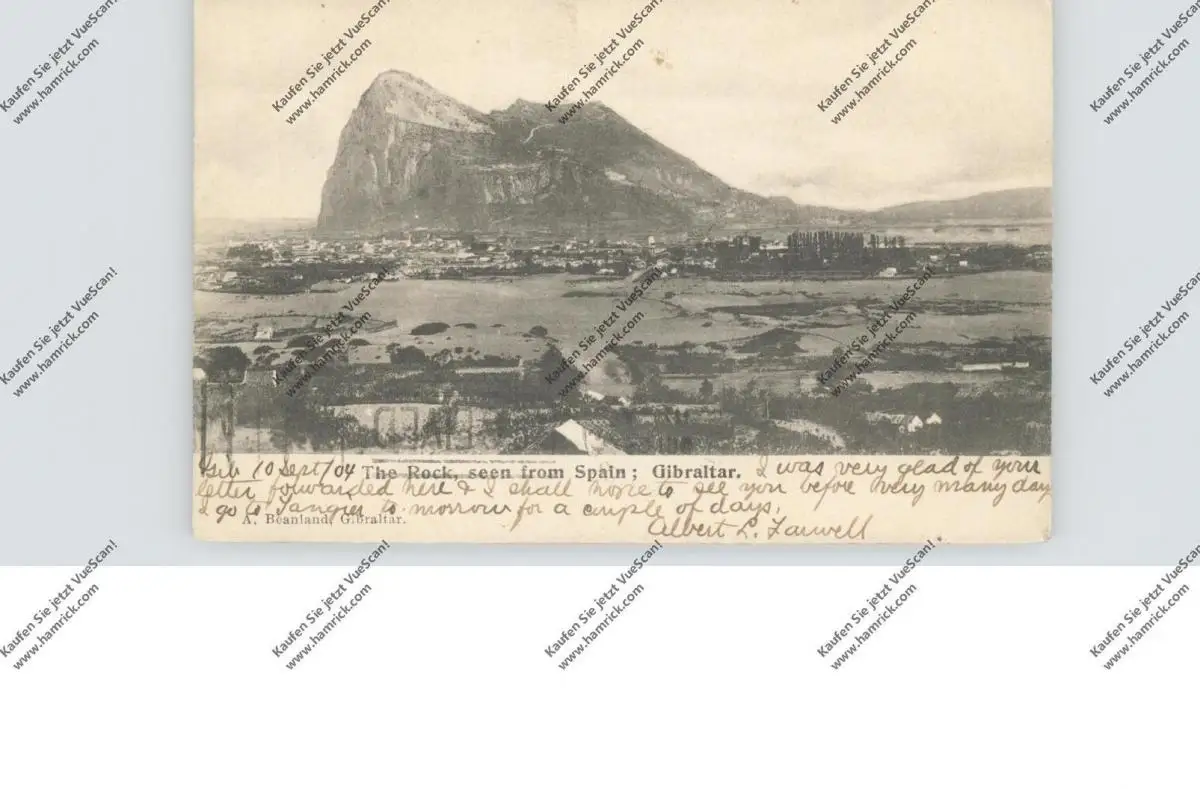 Kaufen Sie jetzt VueScan!
www.hamrick.com
Kaufen Sie jetzt VueScan!
www.hamrick.com
Kaufen Sie jetzt VueScan!
www.hamrick.com
Kaufen Sie jetzt VueScan!
www.hamrick.com
Kaufen Sie jetzt VueScan!
www.hamrick.com
Kaufen Sie jetzt VueScan!
www.hamrick.com
Kaufen Sie jetzt VueScan!
www.hamrick.com
Kaufen Sie jetzt VueScan!
www.hamrick.com
Kaufen Sie jetzt VueScan!
www.hamrick.com
Kaufen Sie jetzt VueScan!
www.hamrick.com
Gib 10 Sept/04 The Rock, seen from Spain; Gibraltar. I was very glad of your
letter forwarded here & I shall hope to see you before very many days
I go to Tangier to-morrow for a couple of days.
A. Beanland, Gibraltar.
Albert L. Farwell
Kaufen Sie jetzt VueScan!
www.hamrick.com
Kaufen Sie jetzt VueScan!
www.hamrick.com
Kaufen Sie jetzt VueScan!
www.hamrick.com
Kaufen Sie jetzt VueScan!
www.hamrick.com
Kaufen Sie jetzt VueScan!
www.hamrick.com